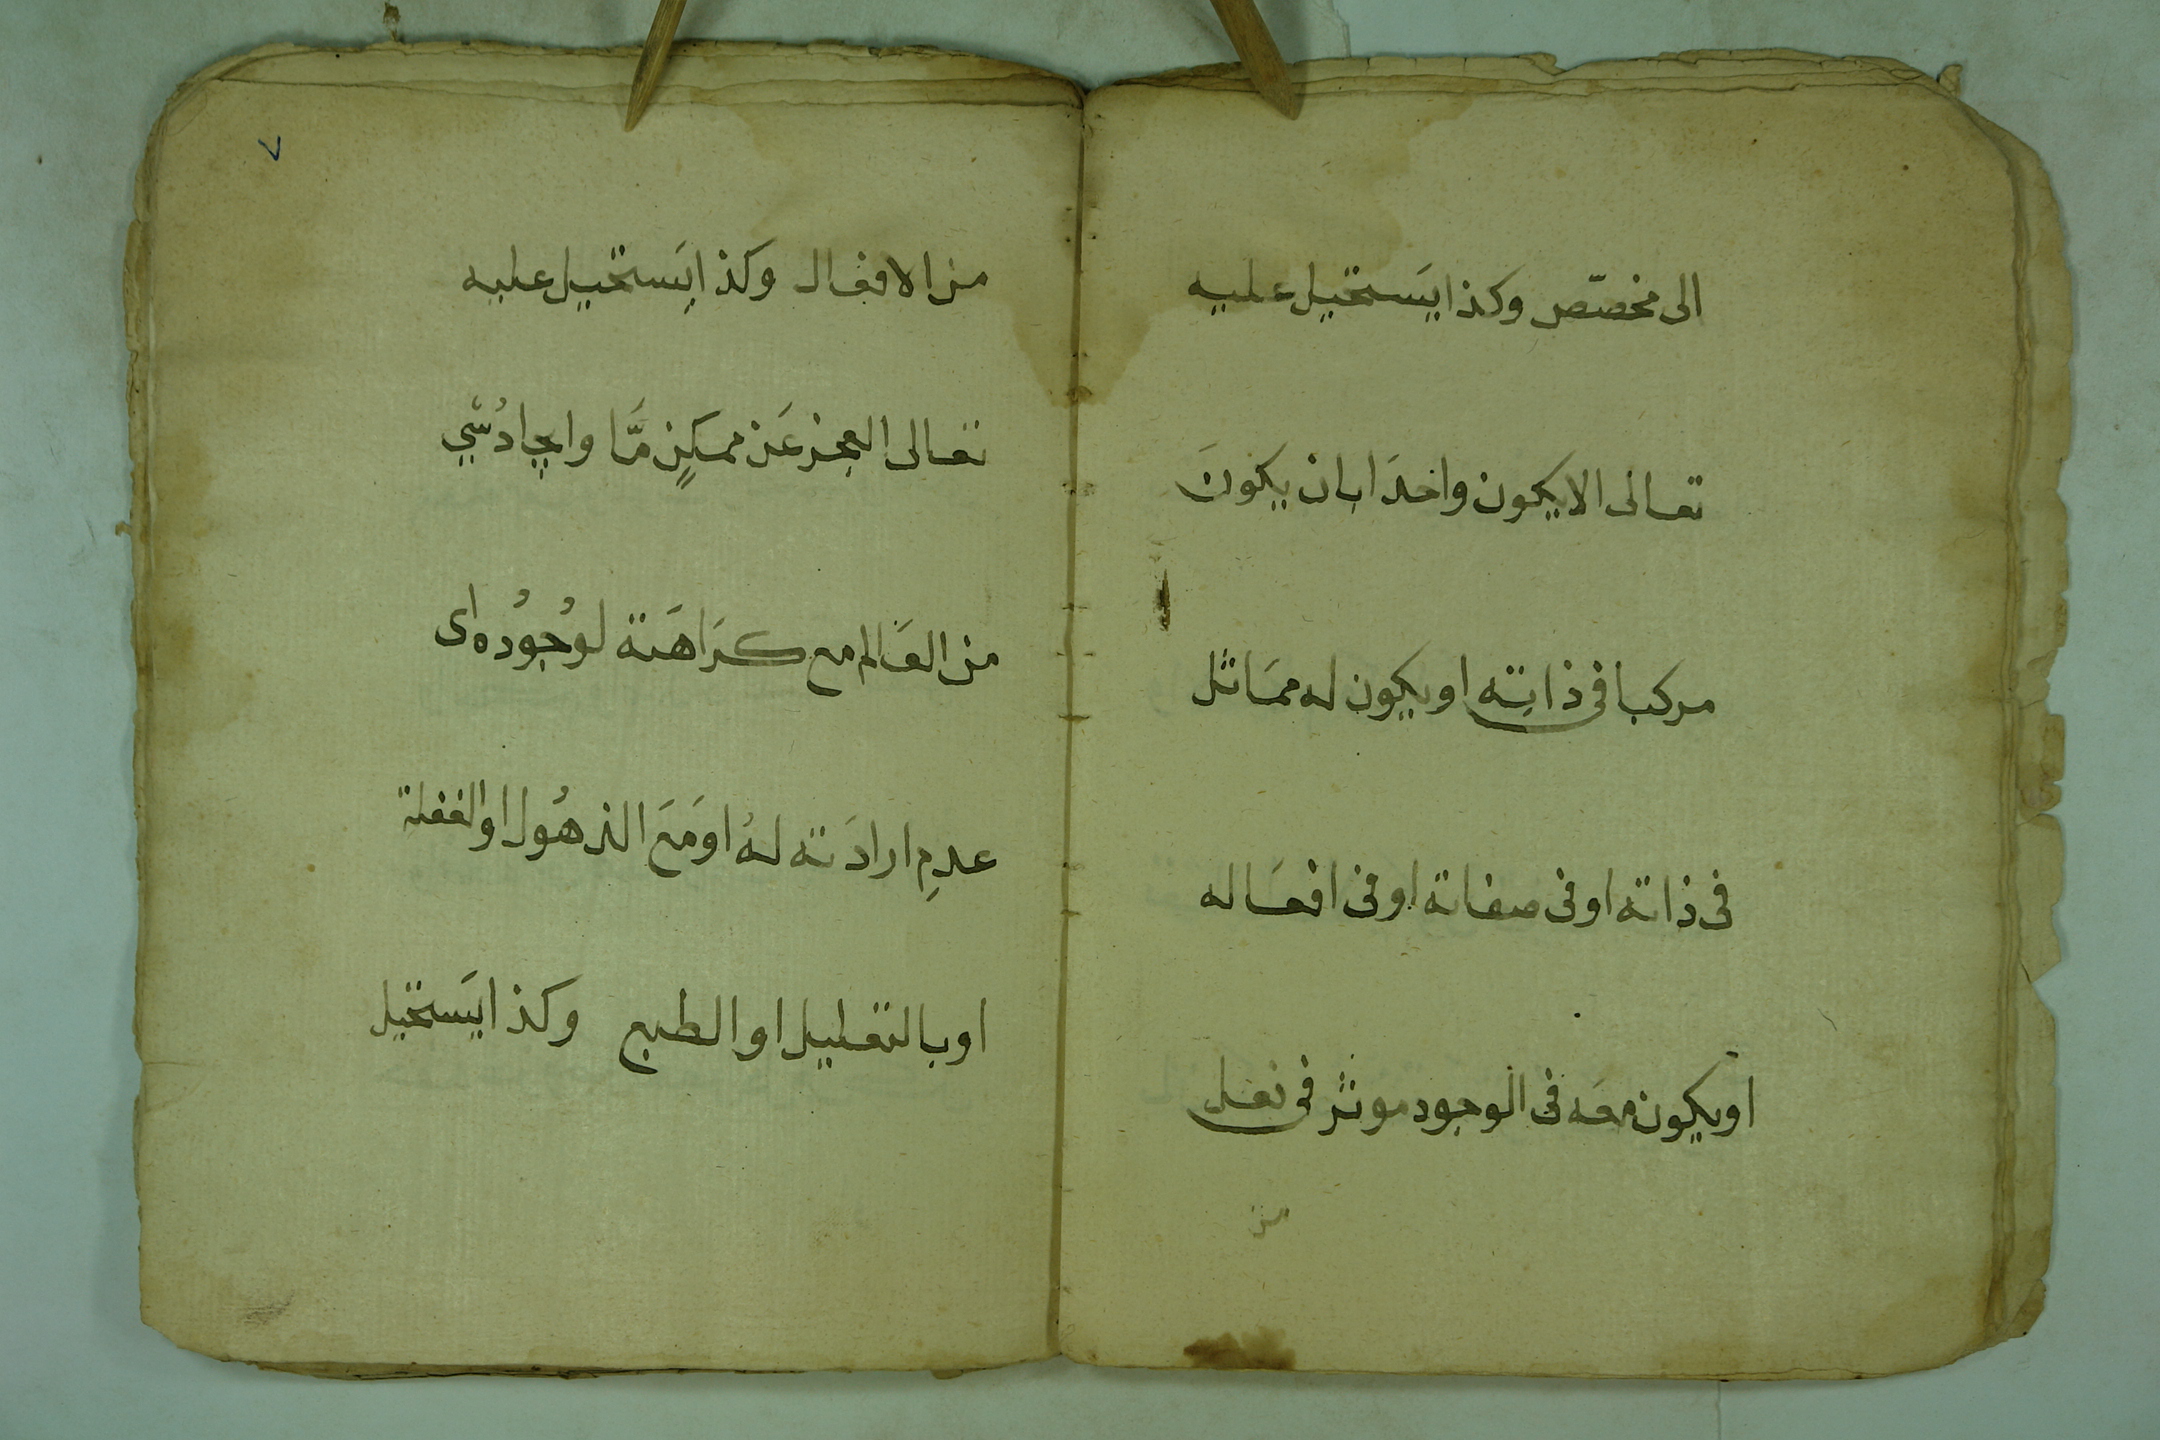 الى مخصّص وكذا يَستحيل عليه
تعالى الا يكون واحدَا بان يكونَ
مركبا فى ذاته او يكون له ممَاثل
فى ذاته او فى صفاته او فى افعَاله
او يكون معَه فى الوجود موثر فى فعل
من
٧
من الافعال وكذا يَستحيل عليه
تعالى العجز عَن ممكنٍ مَّا وايجادُ شْيٍ
من العَالم مع كرَاهَته لوُجوُده اى
عدمِ ارادَته لهُ اومَعَ الذهُول او الغفلة
او بالتعليل او الطبع وكذا يَستحيل